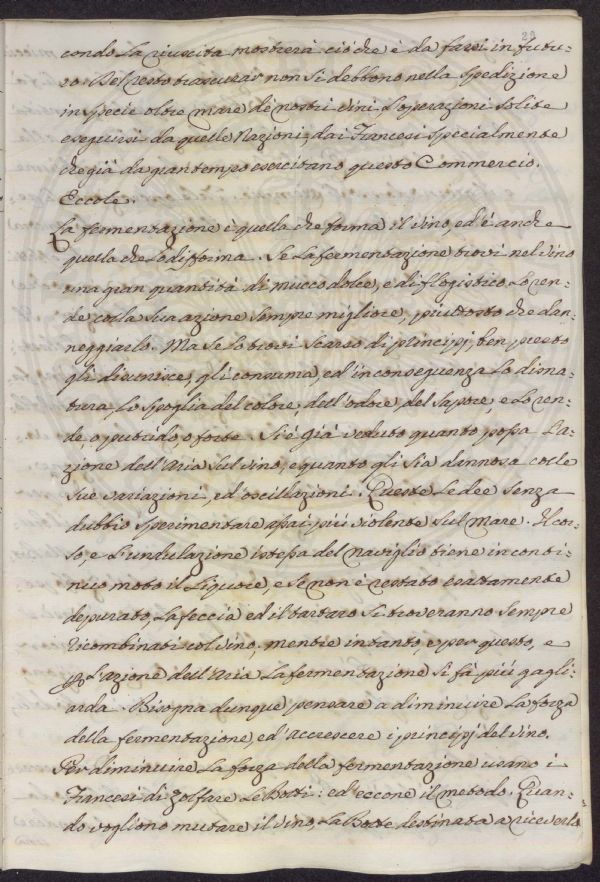 29
condo la riuscita mostrerà ciò che è da farsi in futu:
ro. Del resto trascurar non si debbono nella spedizione
in specie oltre mare de nostri vini, l'operazioni solite
eseguirsi da quelle Nazioni, dai Francesi specialmente
che già da gran tempo esercitano questo Commercio.
Eccole.
La fermentazione è quella che forma il vino, ed è anche
quella che lo difforma. Se la fermentazione trovi nel vino
una gran quantità di mucco dolce, e di flogistico, lo ren:
de colla sua azione sempre migliore, piuttosto che dan:
neggiarlo. Ma se lo trovi scarso di principj, ben presto
gli disunisce, gli consuma, ed in conseguenza lo disna:
tura, lo spoglia del colore, dell'odore, del sapore, e lo ren:
de, o putrido, o forte. Si è già veduto quanto possa l'a:
zione dell'Aria sul vino, e quanto gli sia dannosa colle
sue variazioni, ed oscillazioni. Queste le dee senza
dubbio sperimentare assai più violente sul mare. Il cor:
so, e l'undulazione istessa del naviglio tiene in conti:
nuo moto il liquore, e se non è restato esattamente
depurato, la feccia ed il tartaro si troveranno sempre
ricombinati col vino, mentre intanto, e per questo, e
p l'azione dell'Aria la fermentazione si fà più gagli:
arda. Bisogna dunque pensare a diminuire la forza
della fermentazione, ed accrescere i principj del vino.
Per diminuire la forza della fermentazione usano i
Francesi di zolfare le Botti: ed eccone il metodo. Quan:
do vogliono mutare il vino, la Botte destinata a riceverlo